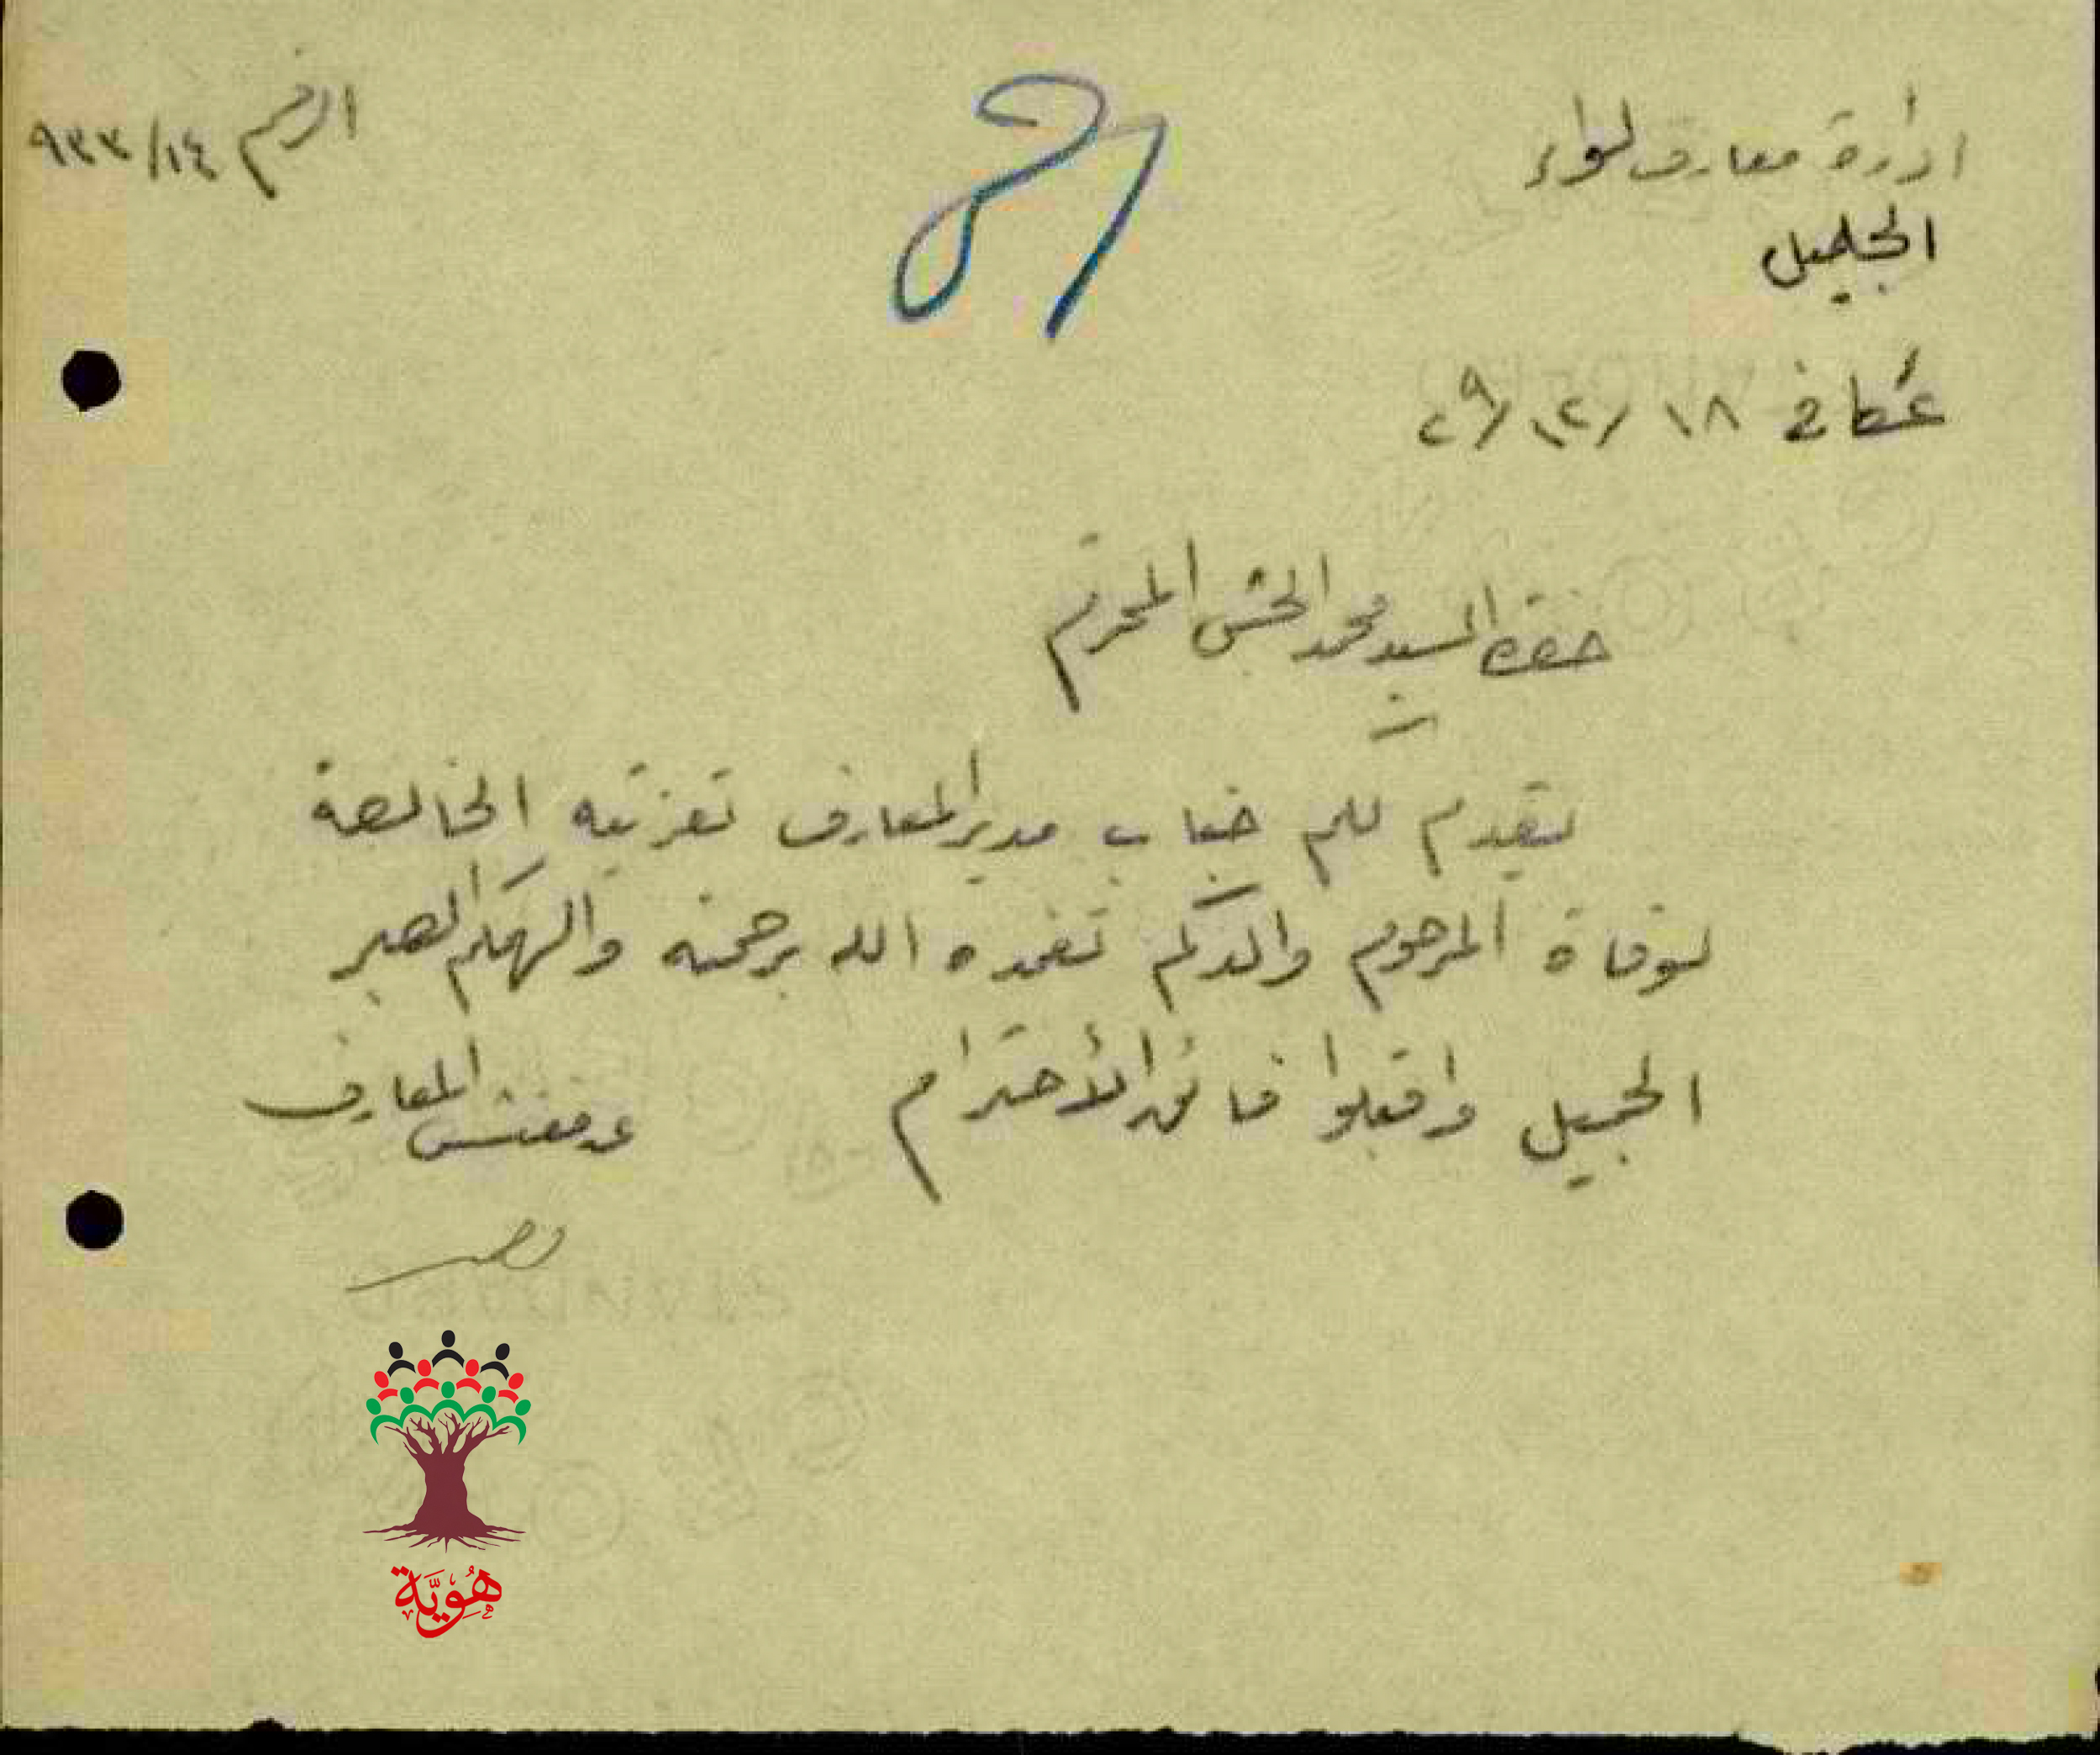 ادارة معارف لواء
الرقم ٩٣٣/١٤
الجليل
عكا في ١٨/١٢/٢٩
حضرة السيد محمد الحبشي المحترم
يتقدم لكم جناب مدير المعارف تعزيته الخالصة
لوفاة المرحوم والدكم تغمده الله برحمته والهمكم الصبر
الجميل واقبلوا فائق الأحترام
عن مفتش المعارف
هُوِيَّة